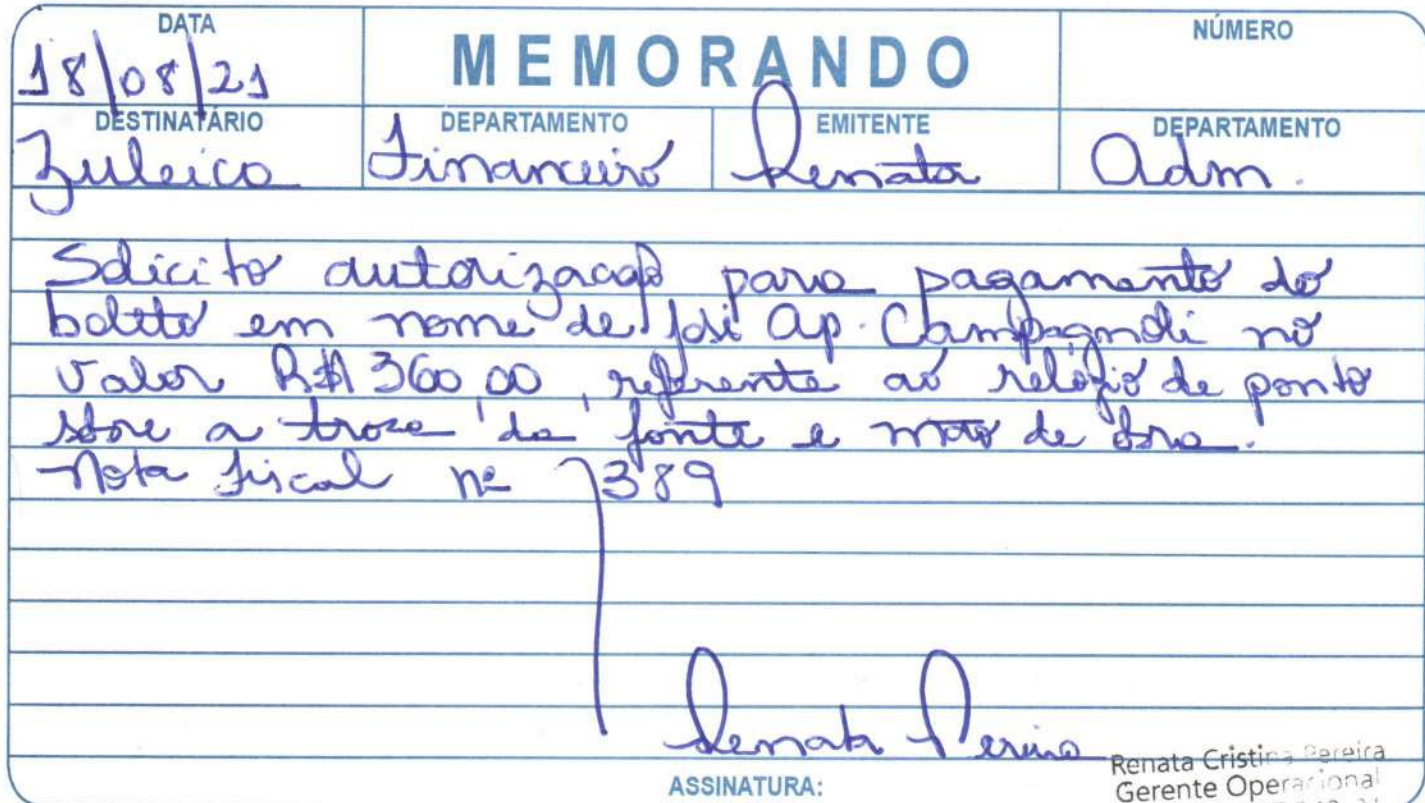 DATA
MEMORANDO
NÚMERO
18/08/21
DESTINATÁRIO DEPARTAMENTO EMITENTE DEPARTAMENTO
Zuleica Financeiro Renata Adm.
Solicito autorização para pagamento do
boleto em nome de José Ap. Campagnoli no
valor R$ 360,00, referente ao relógio de ponto
sobre a troca da fonte e mão de obra.
Nota fiscal nº 389
Renata Pereira
ASSINATURA:
Renata Cristina Pereira
Gerente Operacional